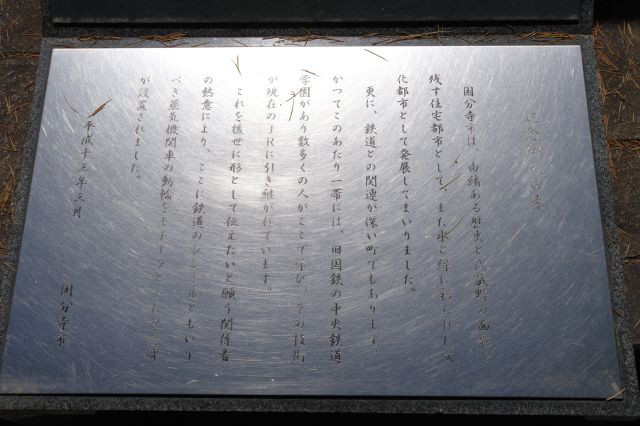 国分寺市は、由緒ある歴史と武蔵野の面影を
残す住宅都市として、また水と緑に
化都市として発展してまいりました。
更に、鉄道との関連が深い町でもあります。
かつてこのあたり一帯には、旧国鉄の中央鉄道
学園があり数多くの人がここで学び、その技術
が現在のJRに引き継がれています。
これを後世に形として伝えたいと願う関係者
の熱意により、ここに鉄道のシンボルともいう
べき蒸気機関車の動輪をモチーフとした記念碑
が設置されました。
平成十三年三月
国分寺市